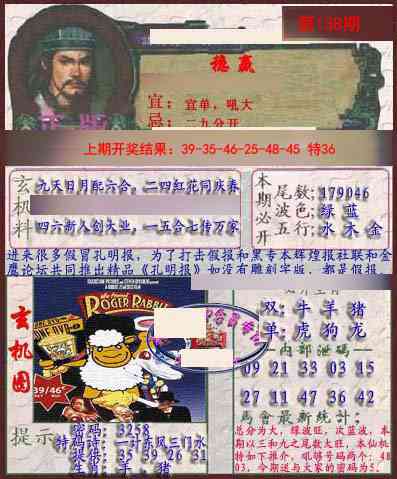 第138期
稳赢
宜: 宜单，吼大
忌: 二九分开
正版
上期开奖结果：39-35-46-25-48-45 特36
玄机料
九天日月配六合，二四红花同庆春
四六新人创大业，一五合七传万家
本期必开
尾数:179046
波色:绿 蓝
五行:水 木 金
进来很多假冒孔明报，为了打击假报和黑专本辉煌报社联和金
鹰论坛共同推出精品《孔明报》如没有雕刻字版，都是假报
玄机图
ROGER RABBIT
39/46
双: 牛 羊 猪
单: 虎 狗 龙
内部泄码
09 21 33 03 15
27 11 47 36 42
馬會最新統計:
总分为大，绿波旺，次蓝波，本
期以三和九之尾数大旺，本仙机
特如下推介，吼够号码两个：48
03，今期送与大家的密码为5.
提示
密码: 3258
特码诗: 一计东风三门水
提供: 35 39 26 31
生肖: 羊，猪